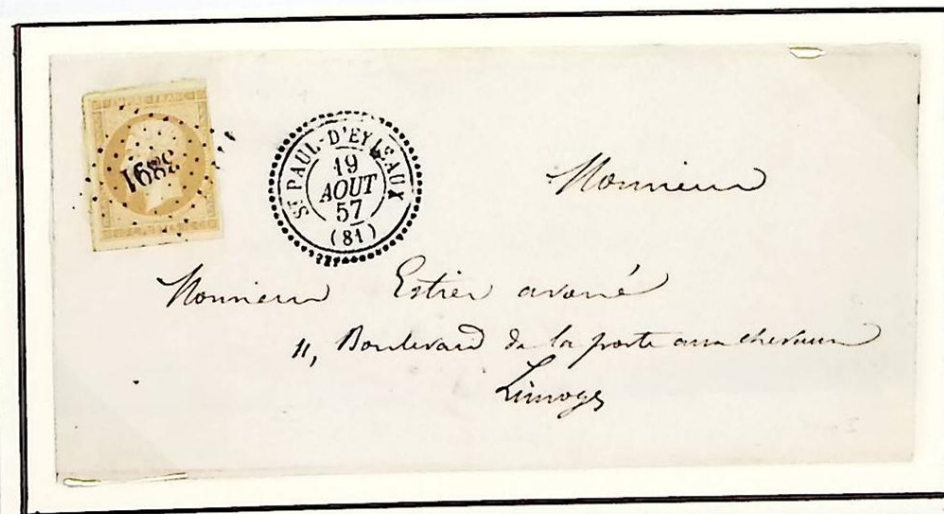 3891
ST PAUL-D'EYJEAUX
19
AOUT
57
(81)
Monsieur
Monsieur Estier avoué
11, Boulevard de la porte aux chevaux
Limoges